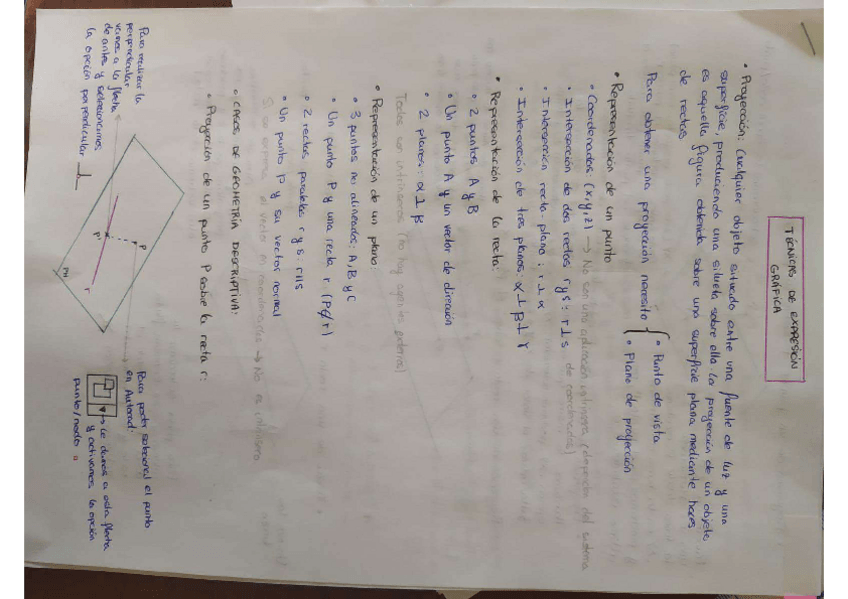 TÉCNICAS DE EXPRESIÓN
GRÁFICA
• Proyección: Cualquier objeto situado entre una fuente de luz y una
superficie, produciendo una silueta sobre ella. La proyección de un objeto
es aquella figura obtenida sobre una superficie plana mediante haces
de rectas
Para obtener una proyección necesito { • Punto de vista
• Plano de proyección
• Representación de un punto
• Coordenadas (x,y,z) → No son una definición intrínseca (depende del sistema
de coordenadas)
• Intersección de dos rectas r y s: r ⊥ s
• Intersección recta-plano: r ⊥ α
• Intersección de tres planos: α ⊥ β ⊥ γ
• Representación de la recta:
• 2 puntos A y B
• Un punto A y un vector de dirección
• 2 planos: α ⊥ β
Todos son intrínsecos (no hay agentes externos)
• Representación de un plano:
• 3 puntos no alineados: A, B y C
• Un punto P y una recta r (P∉r)
• 2 rectas paralelas r y s: r∥s
• Un punto P y su vector normal
Si se expresa el vector en coordenadas → No es intrínseco
• CASOS DE GEOMETRÍA DESCRIPTIVA:
• Proyección de un punto P sobre la recta r:
Para realizar la
perpendicular
vamos a la flecha
de antes y seleccionamos
la opción perpendicular ⊥
P'
P
r
Para poder seleccionar el punto
en Autocad:
→ Le damos a esta flecha
y activamos la opción
punto/nodo "